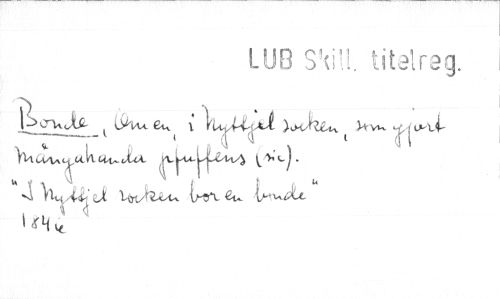 LUB Skill. titelreg.
Bonde, Om en, i Nyttjel socken, som gjort
mångahanda pfuffens (sic).
"I Nyttjel socken bor en bonde"
184